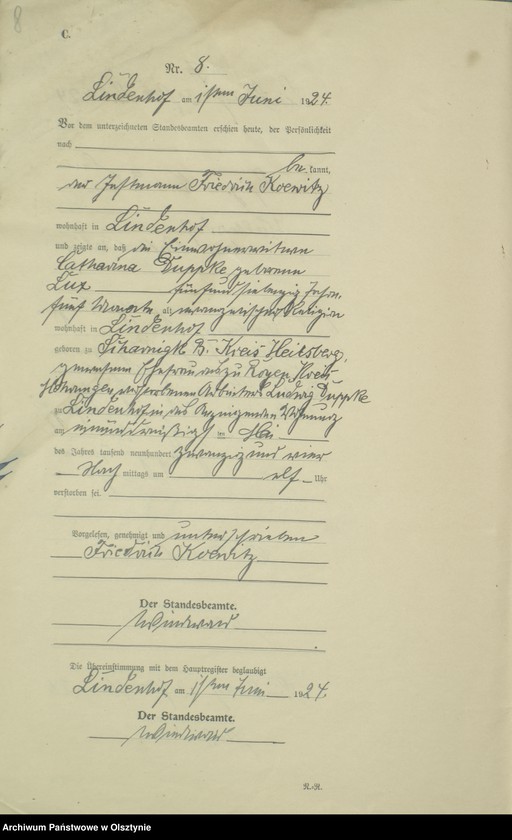 8
C.
Nr. 8.
Lindenhof am 1sten Juni 1924.
Vor dem unterzeichneten Standesbeamten erschien heute, der Persönlichkeit
nach
be kannt,
der Instmann Friedrich Koewitz
wohnhaft in Lindenhof
und zeigte an, daß die Einwohnerwitwe
Catharina Duppke geborene
Lux fünfundsiebenzig Jahre,
fünf Monate alt evangelischer Religion
wohnhaft in Lindenhof
geboren zu B. Kreis Heilsberg,
gewesene Ehefrau des zu Kreis
verstorbenen Arbeiters Ludwig Duppke
zu Lindenhof in der Wohnung
am einunddreißigsten Mai
des Jahres tausend neunhundert zwanzig und vier
Nach mittags um elf Uhr
verstorben sei.
Vorgelesen, genehmigt und unterschrieben
Friedrich Koewitz
Der Standesbeamte.
Die Übereinstimmung mit dem Hauptregister beglaubigt
Lindenhof am 1sten Juni 1924.
Der Standesbeamte.
R.-R.
Archiwum Państwowe w Olsztynie